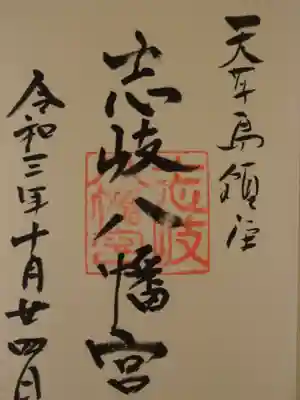 天草島領主
志岐八幡宮
令和三年十月廿四日
志岐
八幡宮